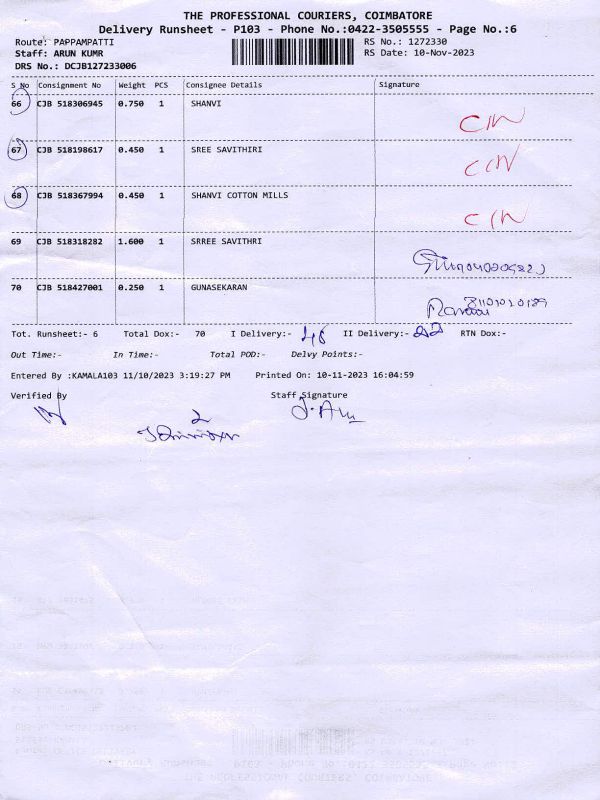 THE PROFESSIONAL COURIERS, COIMBATORE
Delivery Runsheet - P103 - Phone No.:0422-3505555 - Page No.:6
Route: PAPPAMPATTI RS No.: 1272330
Staff: ARUN KUMR RS Date: 10-Nov-2023
DRS No.: DCJB127233006
S No Consignment No Weight PCS Consignee Details Signature
66 CJB 518306945 0.750 1 SHANVI
CIN
67 CJB 518198617 0.450 1 SREE SAVITHIRI
CIN
68 CJB 518367994 0.450 1 SHANVI COTTON MILLS
CIN
69 CJB 518318282 1.600 1 SRREE SAVITHRI
70 CJB 518427001 0.250 1 GUNASEKARAN
Tot. Runsheet:- 6 Total Dox:- 70 I Delivery:- 48 II Delivery:- 22 RTN Dox:-
Out Time:- In Time:- Total POD:- Delvy Points:-
Entered By :KAMALA103 11/10/2023 3:19:27 PM Printed On: 10-11-2023 16:04:59
Verified By Staff Signature